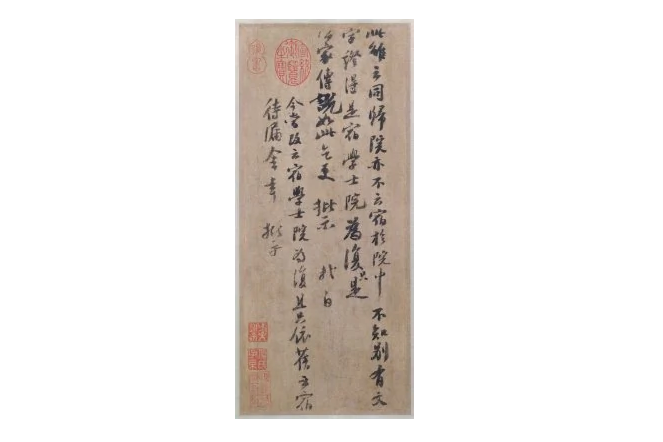 此雖云同歸院亦不云宿於院中不知別有文
字證得是宿學士院為復只是
家傳說如此乞更批示 白
今當改云宿學士院為復且只依舊云宿
待漏舍幸批示